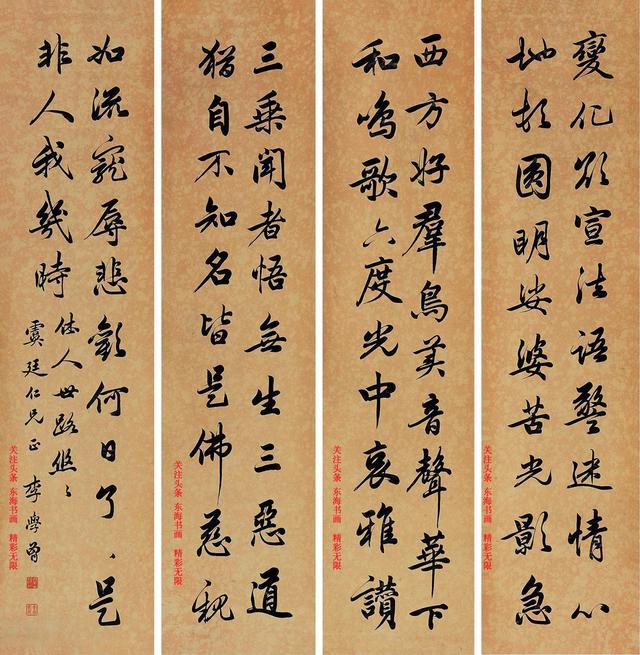 變化欲宣法語警迷情心
地頓圓明娑婆苦光影急
西方好羣鳥美音聲華下
和鳴歌六度光中哀雅讚
三乘聞者悟無生三惡道
猶自不知名皆是佛慈親
如流寵辱悲歡何日了、是
非人我幾時
休人世路悠〻
廷仁兄正 李學曾
关注头条 东海书画 精彩无限
关注头条 东海书画 精彩无限
关注头条 东海书画 精彩无限
关注头条 东海书画 精彩无限